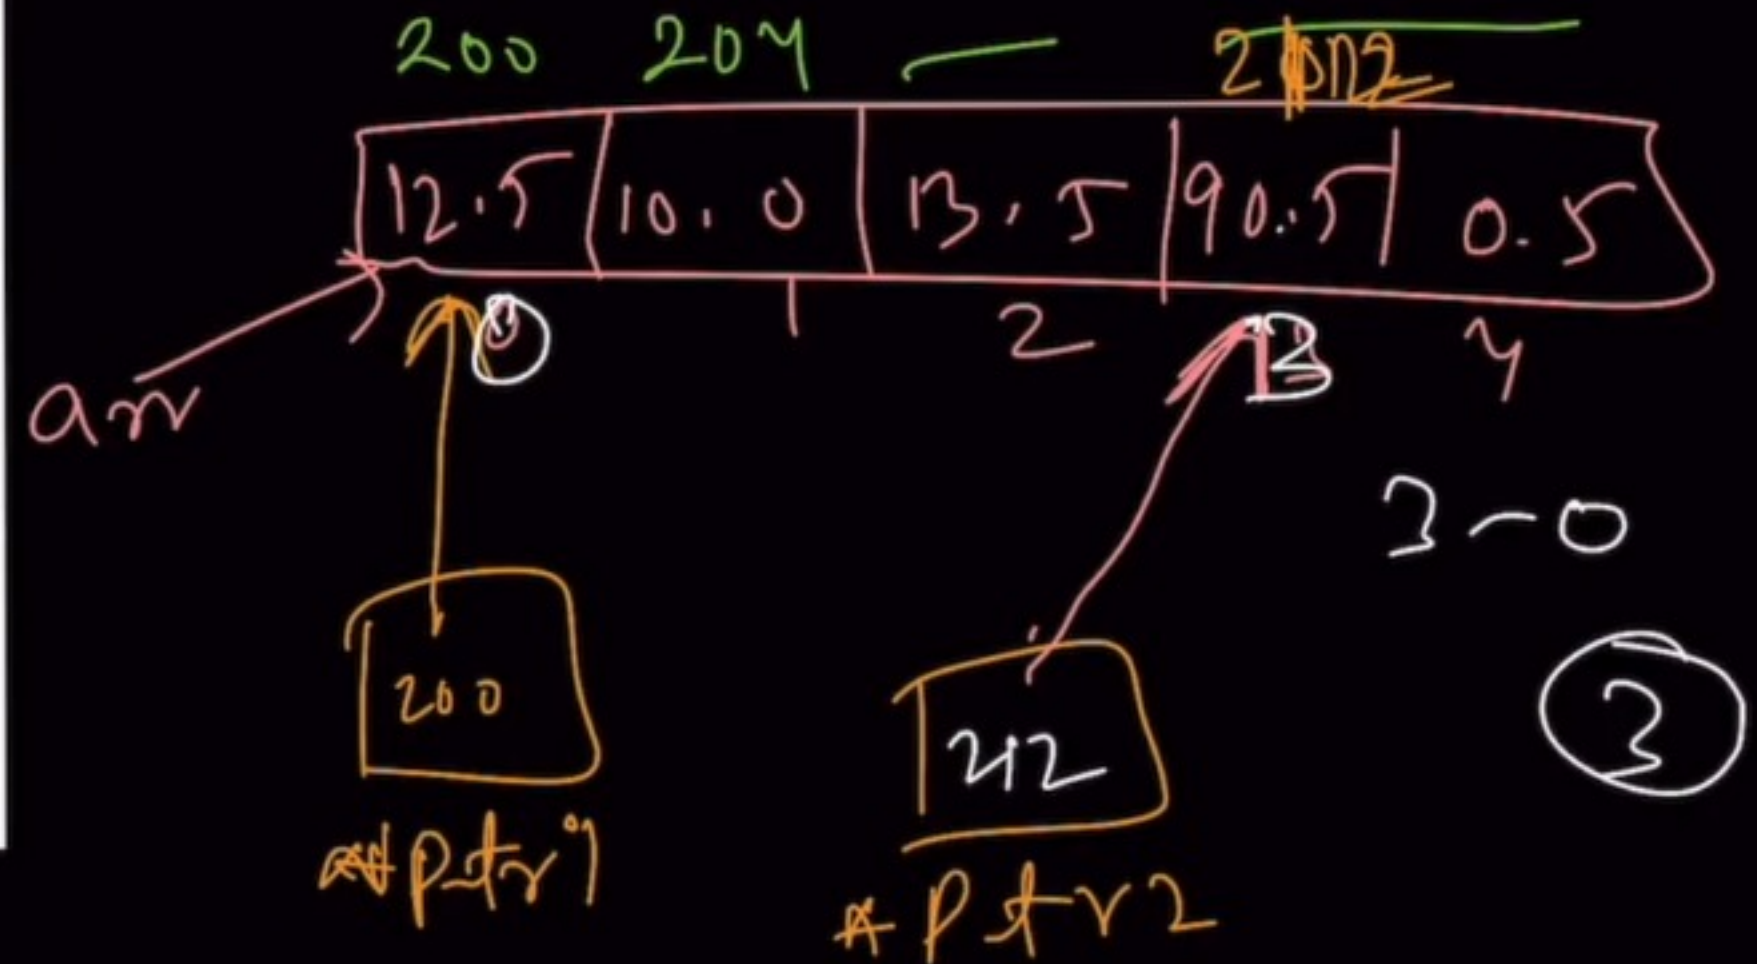 200 204
12.5 10.0 13.5 90.5 0.5
0 1 2 3 4
arr
3-0
200
3
212
*ptr1
*ptr2